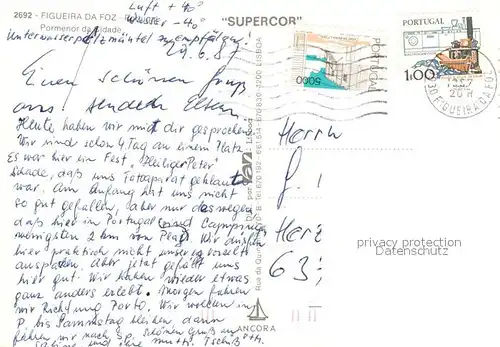 2692 - FIGUEIRA DA FOZ -
Pormenor da Cidade
Luft + 40°
Wasser - 40°
"SUPERCOR"
Unterwasserpelzmäntel zu empfehlen!
29.6.87
Einen schönen Gruß
aus senden Eltern
Heute haben wir mit dir gesprochen
Wir sind schon 4 Tag an einem Platz
Es war hier ein Fest "Heiliger Peter"
Schade, daß uns Fotoaparat geklaut
war. Am Anfang hat uns nicht
so gut gefallen, aber nur deswegen
daß hier in Portugal sind Campings
wenigsten 2 km von Plaža. Wir dürfen
hier praktisch nicht unser
auspacken. Aber jetzt gefällt uns
hier gut. Wir haben wieder etwas
ganz anders erlebt. Morgen fahren
wir Richtung Porto. Wir wollen in
P. bis Samstag bleiben, dann
fahren wir nach Sp. Schönen Gruß an
Mutti. Tschüß
PORTUGAL
5000
PORTUGAL
1$00
FIGUEIRA DA F
LISBOA
1200 LISBOA
Herrn
G. !
Herz
63;
ANCORA
privacy protection
Watermarks